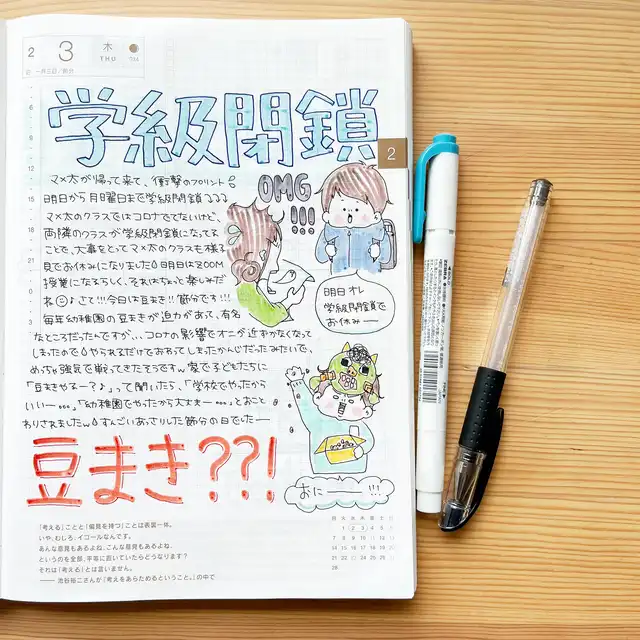 2
3
木
THU
学級閉鎖
2
マメ太が帰って来て、衝撃のプリント
明日から月曜日まで学級閉鎖
マメ太のクラスではコロナでてないけど、
両隣のクラスが学級閉鎖になってる
ことで、大事をとってマメ太のクラスも様子
見でお休みになりました 明日はZOOM
授業になるらしく、それはちょっと楽しみだ
ね さて!!!今日は豆まき!!節分です!!!
毎年幼稚園の豆まきが迫力があって、有名
なところだったんですが... コロナの影響でオニが近すかなくなって
しまったので やられるだけでおわってしまったかんじだったみたいで、
めっちゃ強気で帰ってきたそうですw 家で子どもたちに
「豆まきやるー?♪」って聞いたら、「学校でやったから
いいー...」「幼稚園でやったから大丈夫ー...」とおこと
わりされましたw すんごいあっさりした節分の日でしたー
OMG
!!!
明日オレ
学級閉鎖で
お休みー
豆まき??!
おにー!!!
「考える」ことと「偏見を持つ」ことは表裏一体。
いや、むしろ、イコールなんです。
あんな意見もあるよね、こんな意見もあるよね、
というのを全部、平等に置いていたらどうなります?
それは「考える」とは言いません。
── 池谷裕二さんが『考えをあらためるということ。』の中で